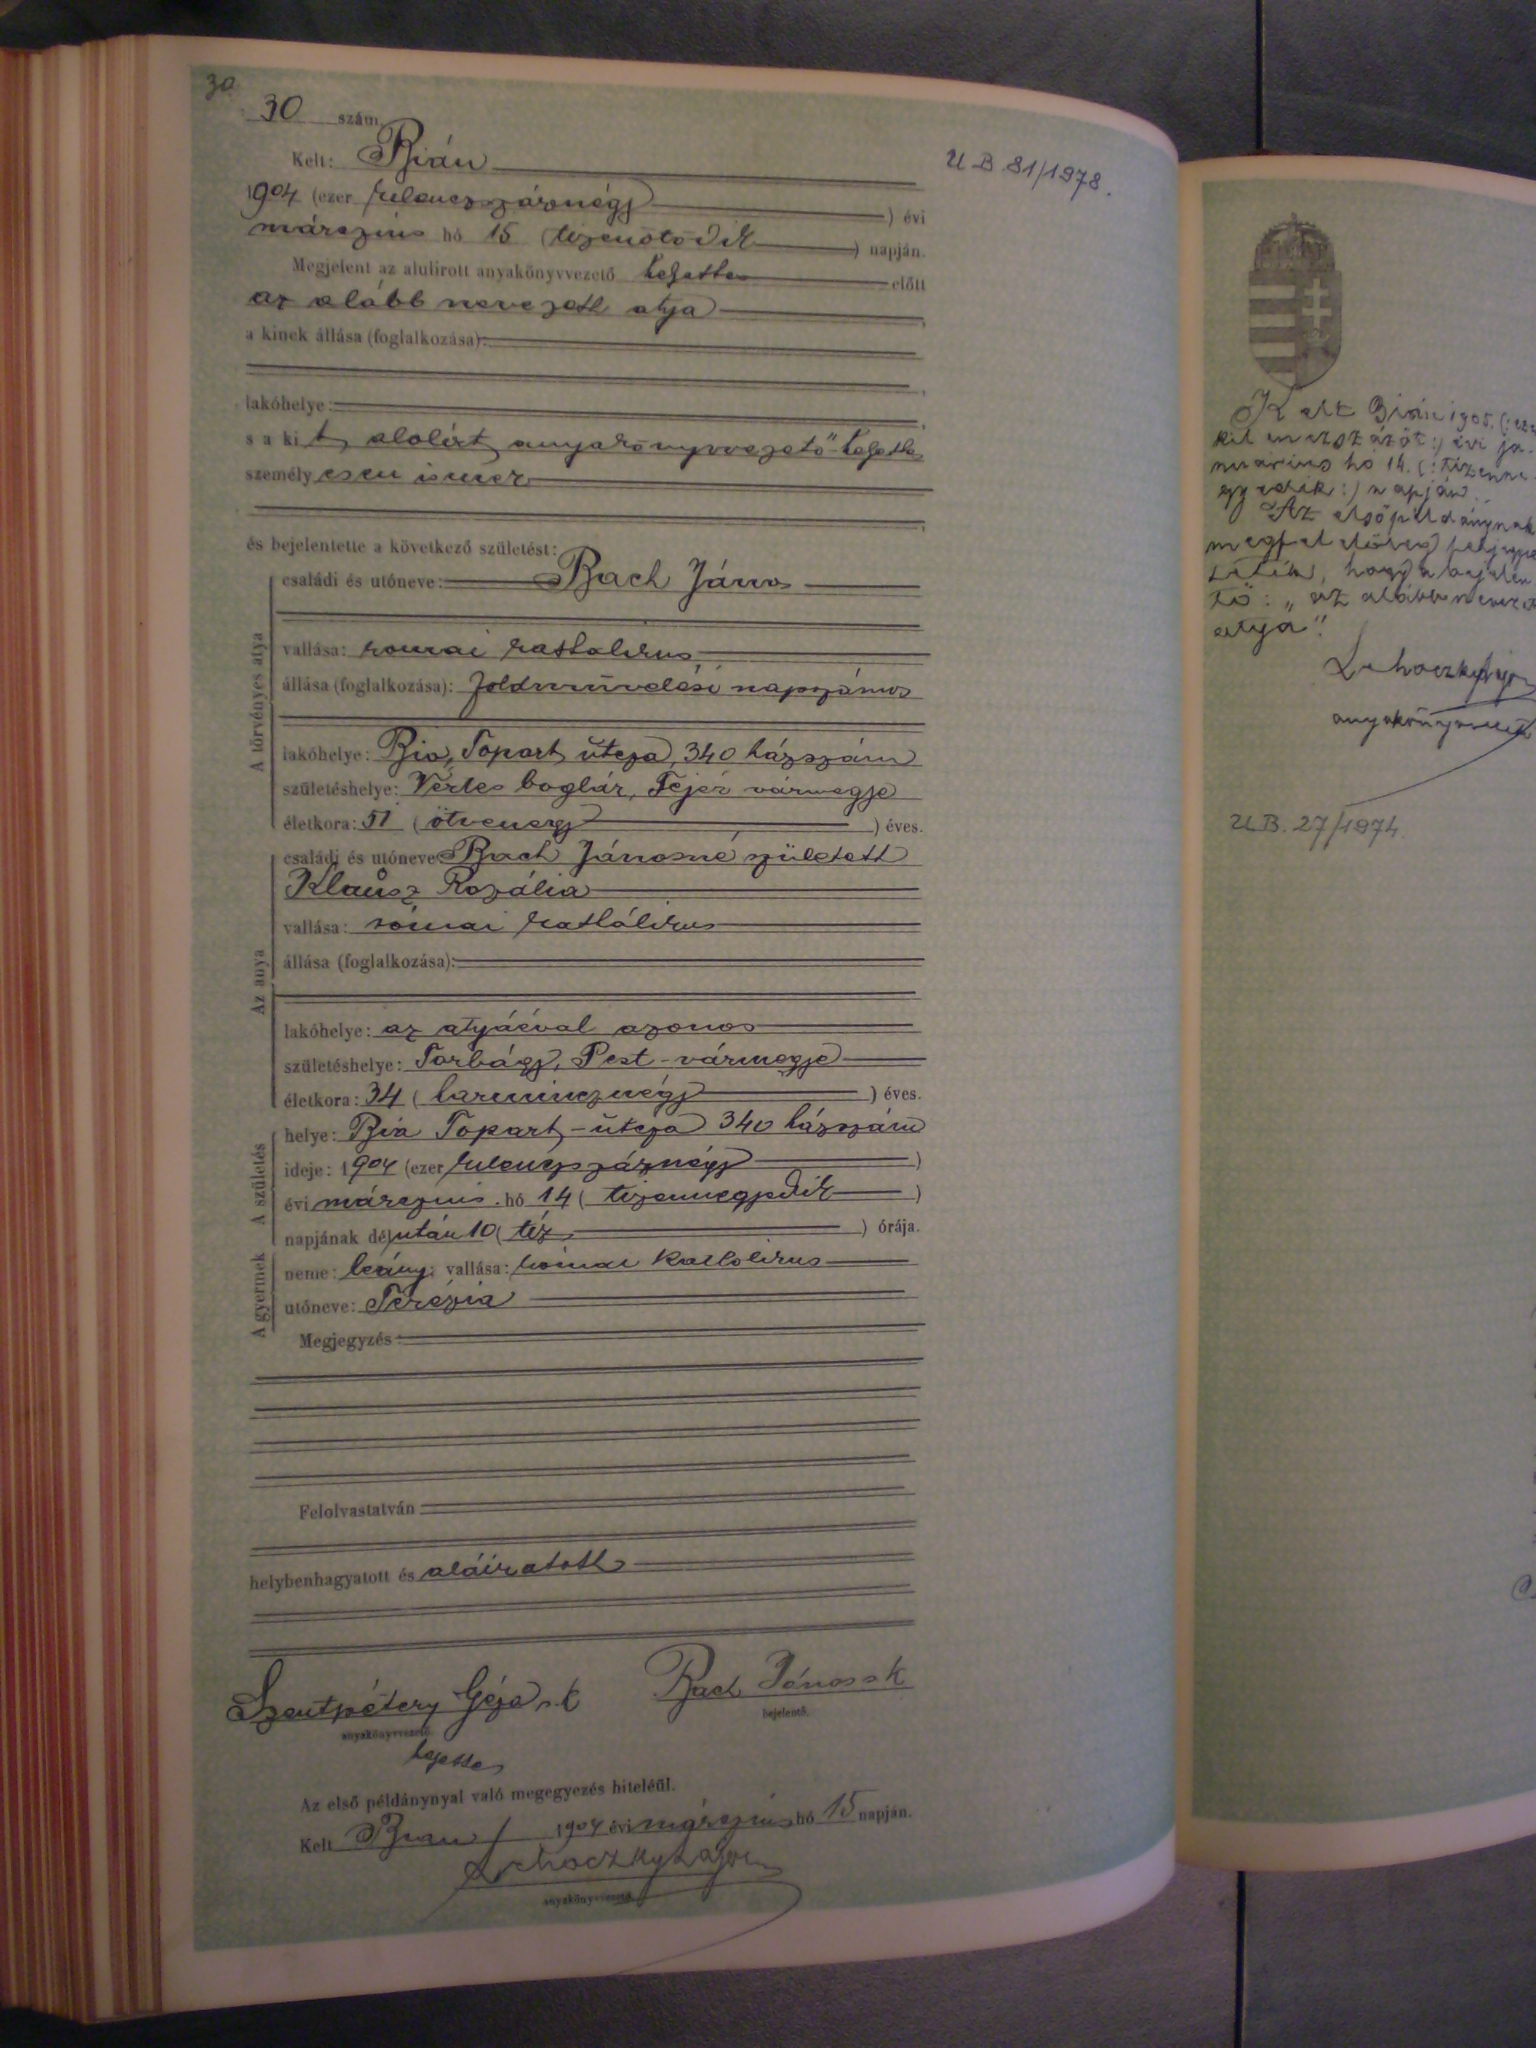 30
30 szám.
Kelt: Bián
1904 (ezer kilenczszáznégy) évi
márczius hó 15 (tizenötödik) napján.
Megjelent az alulirott anyakönyvvezető helyettes előtt
az alább nevezett atyja,
a kinek állása (foglalkozása):
lakóhelye:
s a kit alolirt anyakönyvvezető-helyettes
személyesen ismer,
és bejelentette a következő születést:
A törvényes atya
családi és utóneve: Bach János
vallása: romai katholikus,
állása (foglalkozása): földmüvelési napszámos
lakóhelye: Bia, Topart utcza, 340 házszám
születéshelye: Vértes boglár, Fejér vármegye
életkora: 51 (ötvenegy) éves.
Az anya
családi és utóneve: Bach Jánosné született
Klausz Rozália
vallása: római katholikus
állása (foglalkozása):
lakóhelye: az atyáéval azonos
születéshelye: Torbágy, Pest-vármegye
életkora: 34 (harmincznégy) éves.
A születés
helye: Bia Topart-utcza 340 házszám
ideje: 1904 (ezer kilenczszáznégy)
évi márczius hó 14 (tizennegyedik)
napjának délután 10 (tíz) órája.
A gyermek
neme: leány; vallása: római katholikus
utóneve: Terézia
Megjegyzés:
Felolvastatván
helybenhagyatott és aláiratott
Szentpétery Géza s.k. Bach János s k
anyakönyvvezető. bejelentő.
helyettes
Az első példánynyal való megegyezés hiteléül.
Kelt Bián 1904 évi márczius hó 15 napján.
Lehoczky Lajos
anyakönyvvezető.
U B. 81/1978.
Kelt Bián 1905. (: ezer
kilenczszázöt :) évi ja-
nuárius hó 14. (: tizenne-
gyedik :) napján.
Az elsőpéldánynak
megfelelőleg feljegyez-
tetik, hogy a bejelen-
tő: „az alább nevezett
atyja".
Lehoczky Lajos
anyakönyvvezető
U.B. 27/1974.